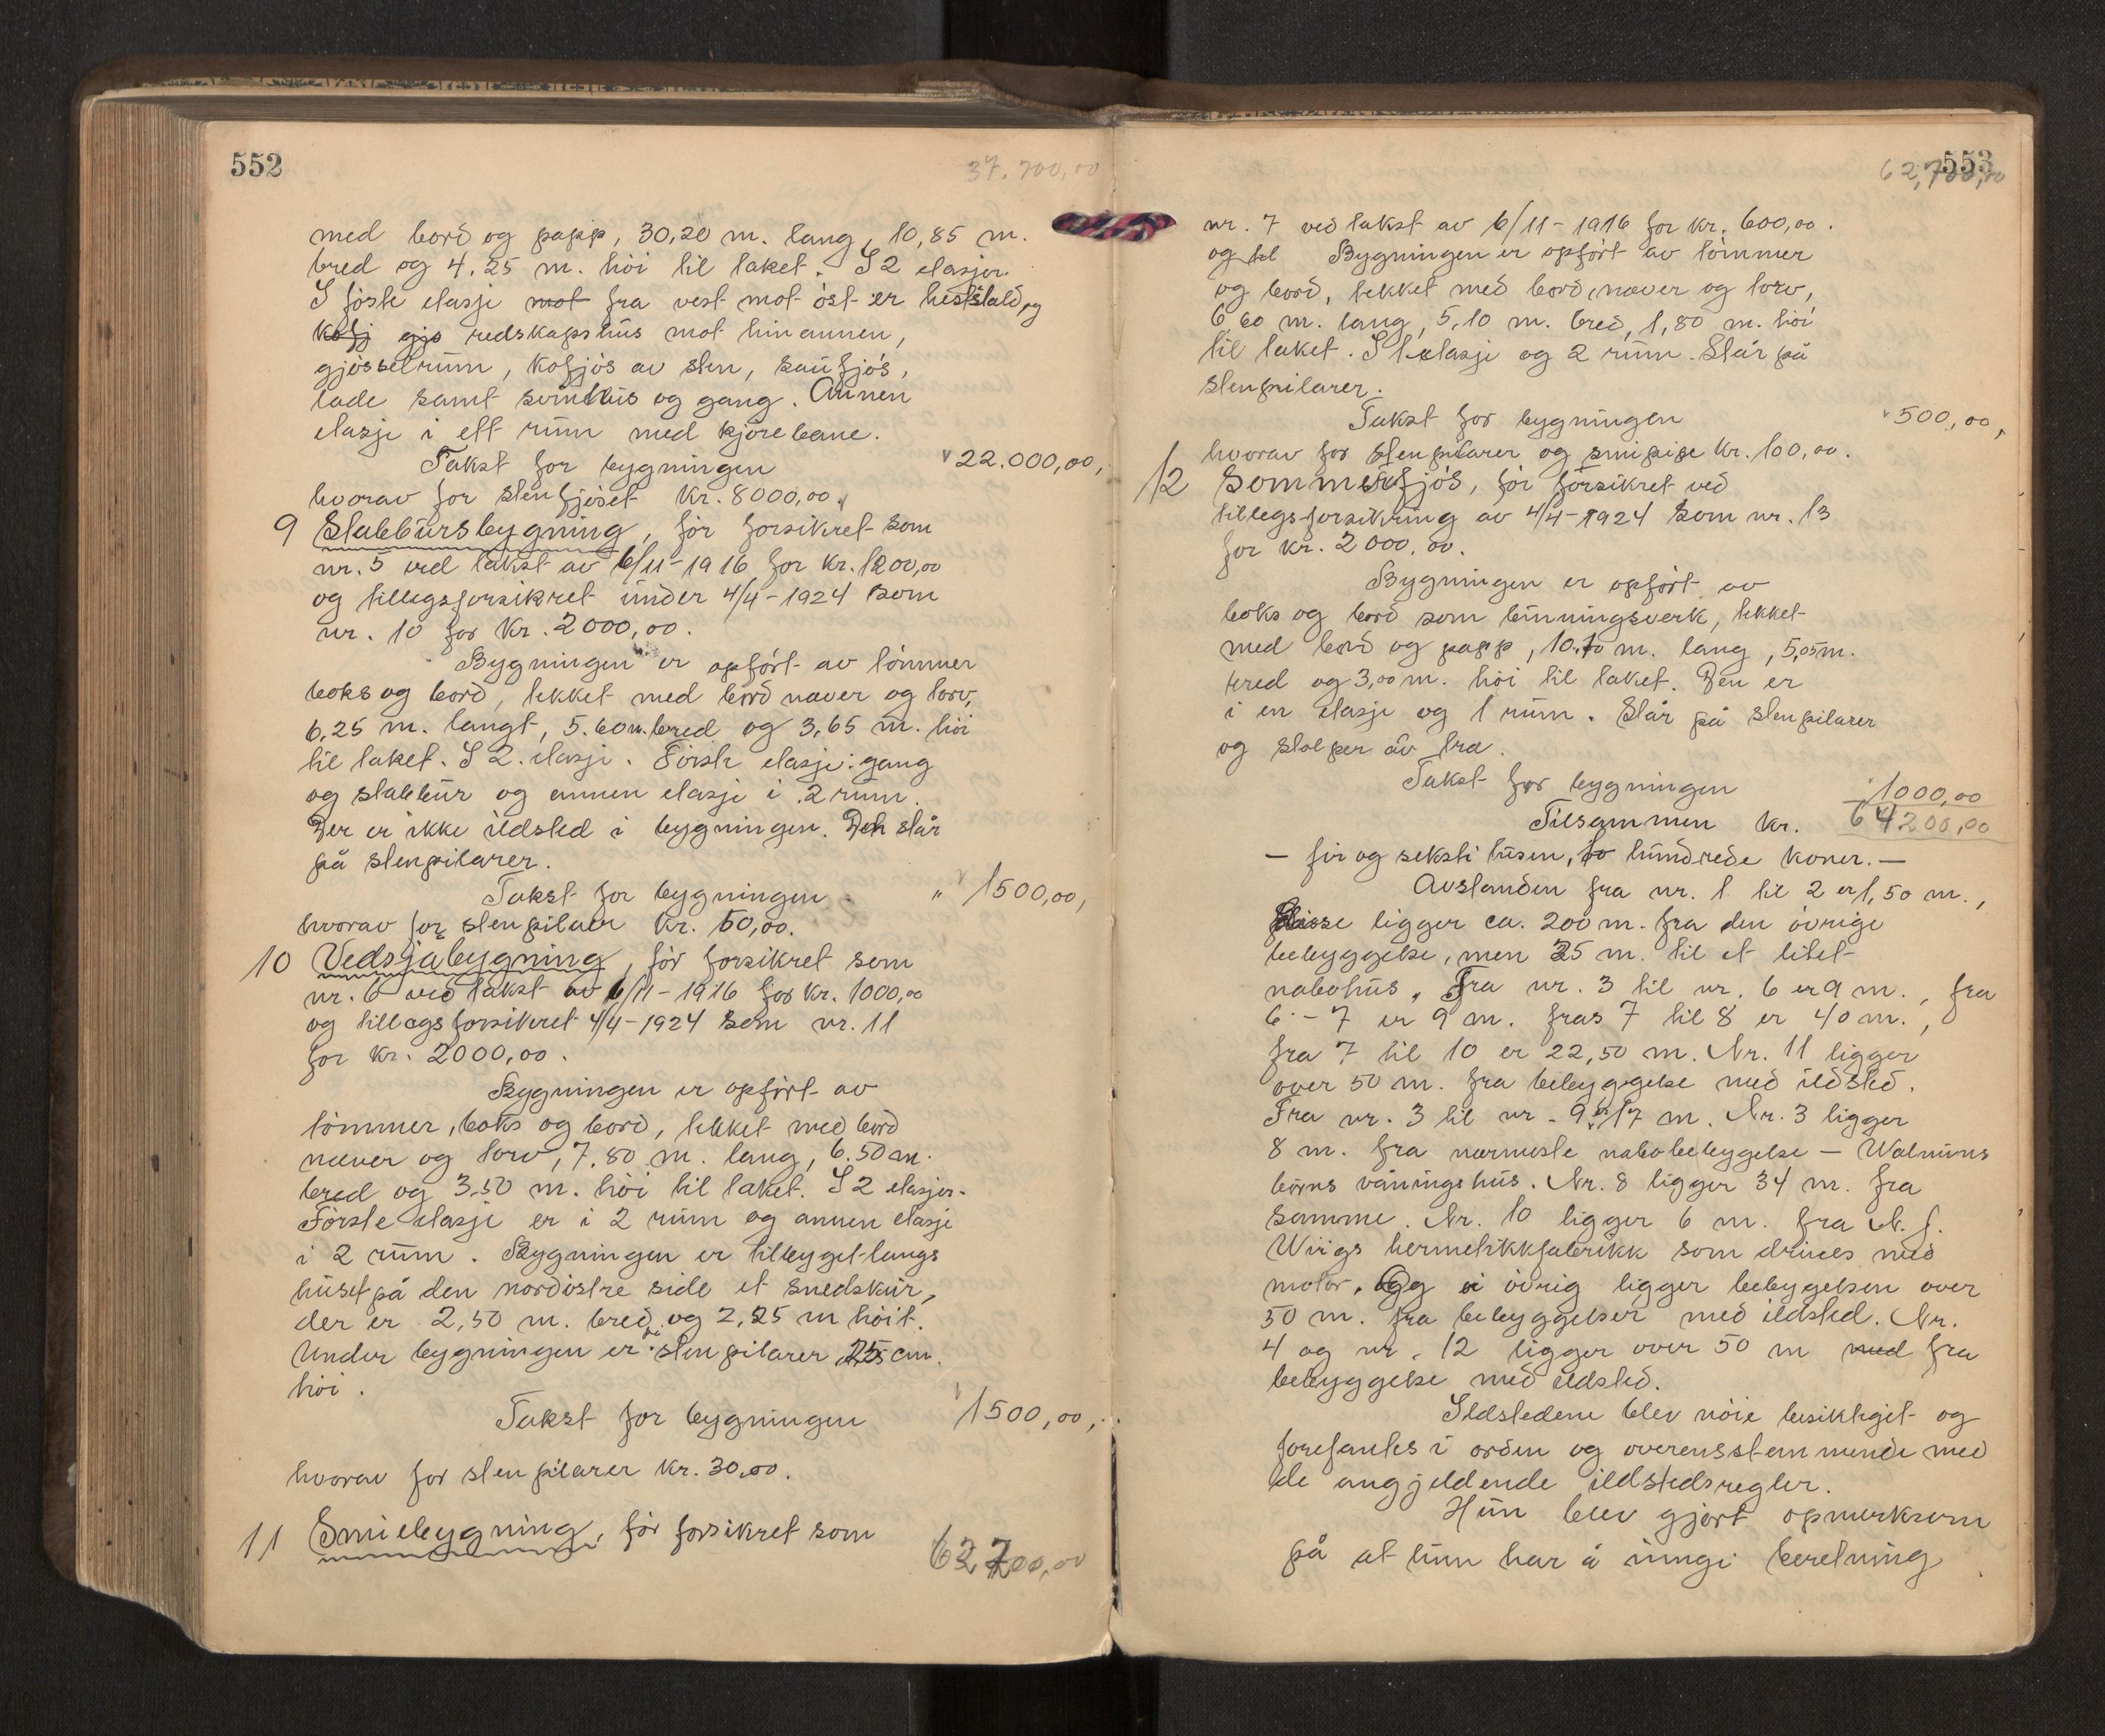 552
37.700,00
med bord og papp, 30,20 m. lang, 10,85 m.
bred og 4.25 m. höi til taket. I 2 etasjer.
I förste etasje mot fra vest mot öst er heststald, og
kofj gjö redskapshus mot hinannen,
gjödselrum, kofjös av sten, saufjös,
lade samt svinhus og gang. Annen
etasje i ett rum med kjörebane.
Takst for bygningen 22.000,00,
hvorav for stenfjöset kr. 8000,00.
9 Stabbursbygning, för forsikret som
nr. 5 ved takst av 6/11-1916 for kr. 1200,00
og tillegsforsikret under 4/4-1924 som
nr. 10 for kr. 2000,00.
Bygningen er opfört av tömmer
boks og bord, tekket med bord never og torv,
6,25 m. langt, 5.60 m. bred og 3,65 m. höi
til taket. I 2. etasje. Förste etasje: gang
og stabbur og annen etasje i 2 rum.
Der er ikke ildsted i bygningen. Den står
på stenpilarer.
Takst for bygningen " 1500,00,
hvorav for stenpilarer kr. 50,00.
10 Vedsjåbygning, för forsikret som
nr. 6 ved takst av 6/11-1916 for kr. 1000,00
og tillegsforsikret 4/4-1924 som nr. 11
for kr. 2000,00.
Bygningen er opfört av
tömmer, boks og bord, tekket med bord
never og torv, 7.80 m. lang, 6.50 m.
bred og 3.50 m. höi til taket. I 2 etasjer.
Förste etasje er i 2 rum og annen etasje
i 2 rum. Bygningen er tilbyget langs
huset på den nordöstre side et snedskur,
der er 2,50 m. bred og 2,25 m höit.
Under bygningen er stenpilarer 25 cm.
höi.
Takst for bygningen 1500,00,
hvorav for stenpilarer kr. 30,00.
11 Smiebygning, för forsikret som
62700,00
553
62,700,00
nr. 7 ved takst av 6/11-1916 for kr. 600,00.
og til Bygningen er opfört av tömmer
og bord, tekket med bord, never og torv,
6,60 m. lang, 5,10 m. bred, 1,80 m. höi
til taket. I 1 etasje og 2 rum. Står på
stenpilarer.
Takst for bygningen 500,00,
hvorav for stenpilarer og smipipe kr. 100,00.
12 Sommerfjös, för forsikret ved
tillegsforsikring av 4/4-1924 som nr. 13
for kr. 2000,00.
Bygningen er opfört av
boks og bord som binningsverk, tekket
med bord og papp, 10.10 m. lang, 5,05 m.
bred og 3,00 m. höi til taket. Den er
i en etasje og 1 rum. Står på stenpilarer
og stolper av tre.
Takst for bygningen 1000,00
Tilsammen kr. 64200,00
— fir og seksti tusen, to hundrede kroner. —
Avstanden fra nr. 1 til 2 er 1,50 m.,
disse ligger ca. 200 m. fra den övrige
bebyggelse, men 25 m. til et litet
nabohus. Fra nr. 3 til nr. 6 er 9 m., fra
6 - 7 er 9 m. fra 7 til 8 er 40 m.,
fra 7 til 10 er 22,50 m. Nr. 11 ligger
over 50 m. fra bebyggelse med ildsted.
Fra nr. 3 til nr. 9 er 17 m. Nr. 3 ligger
8 m. fra nærmeste nabobebygelse —
börns våningshus. Nr. 8 ligger 34 m. fra
samme. Nr. 10 ligger 6 m. fra N. J.
Wiigs hermetikkfabrikk som drives med
motor. Og i övrig ligger bebygelsen over
50 m. fra bebyggelser med ildsted. Nr.
4 og nr. 12 ligger over 50 m med fra
bebyggelse med ildsted.
Ildstedene blev nöie besiktiget og
forefantes i orden og overensstemmende med
de angjeldende ildstedsregler.
Hun blev gjort opmerksom
på at hun har å inngi beretning